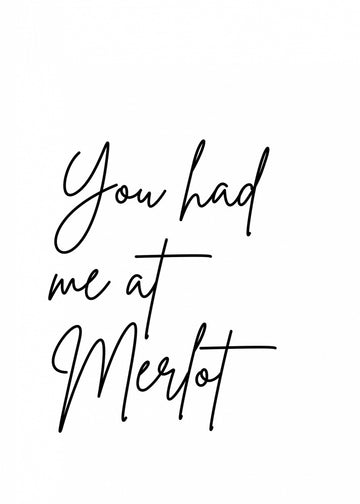 You had
me at
Merlot